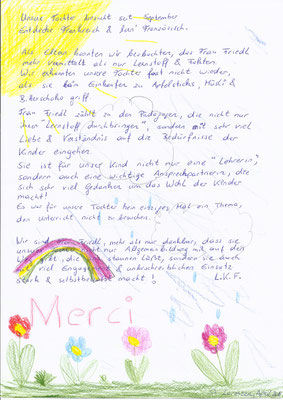 Unsere Tochter besucht seit September
Entdecke Frankreich & lern' Französisch.
Als Eltern konnten wir beobachten, das Frau Friedl
mehr vermittelt als nur Lernstoff & Fakten.
Wir erkannten unsere Tochter fast nicht wieder,
als sie beim Einkaufen zu Apfelstrichs, Müsli &
griff.
Frau Friedl zählt zu den Pädagogen, die nicht nur
ihren "Lernstoff durchbringen", sondern mit sehr viel
Liebe & Verständnis auf die Bedürfnisse der
Kinder eingehen.
Sie ist für unser Kind nicht nur eine "Lehrerin",
sondern auch eine wichtige Ansprechpartnerin, die
sich sehr viel Gedanken um das Wohl der Kinder
macht!
Es war für unsere Tochter kein einziges Mal ein Thema,
den Unterricht nicht zu besuchen.
Wir sind Friedl, mehr als nur dankbar, dass sie
unsere nur Allgemeinbildung mit auf den
die staunen läßt, sondern sie auch
viel & unbeschreiblichen Einsatz
stark & selbstbewusst macht!
L.V.F.
Merci